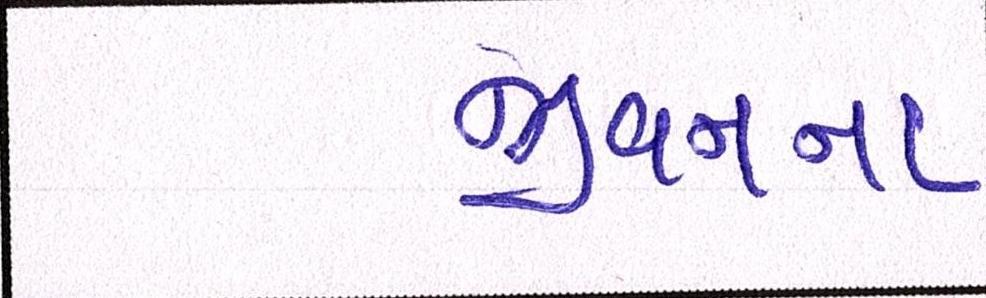 જીવનના